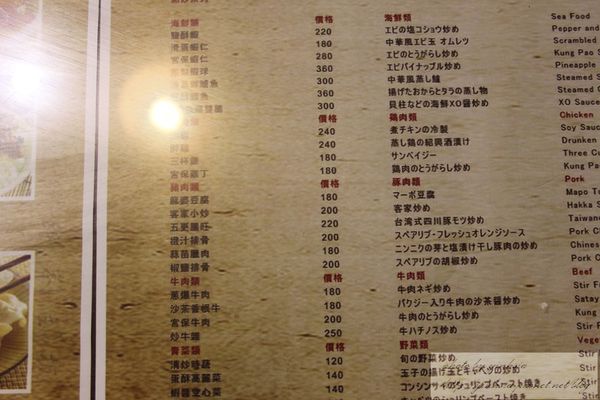 海鮮類 價格 海鮮類 Sea Food
鹽酥蝦 220 エビの塩コショウ炒め Pepper and
滑蛋蝦仁 180 中華風エビ玉 オムレツ Scrambled
宮保蝦仁 280 エビのとうがらし炒め Kung Pao S
鳳梨蝦球 360 エビパイナップル炒め Pineapple
300 中華風蒸し鱸 Steamed S
360 揚げたおからとタラの蒸し物 Steamed C
300 貝柱などの海鮮XO醤炒め XO Sauce
價格 鶏肉類 Chicken
240 煮チキンの冷製 Soy Sauc
240 蒸し鶏の紹興酒漬け Drunken
三杯雞 180 サンベイジー Three Cu
宮保雞丁 180 鶏肉のとうがらし炒め Kung Pa
豬肉類 價格 豚肉類 Pork
麻婆豆腐 180 マーボ豆腐 Mapo Tu
客家小炒 200 客家炒め Hakka S
五更腸旺 220 台湾式四川豚モツ炒め Taiwan
橙汁排骨 200 スペアリブ・フレッシュオレンジソース Pork C
蒜苗臘肉 200 ニンニクの芽と塩漬け干し豚肉の炒め Chines
椒鹽排骨 200 スペアリブの胡椒炒め Pork C
牛肉類 價格 牛肉類 Beef
蔥爆牛肉 180 牛肉ネギ炒め Stir F
沙茶薈根牛 200 パクジー入り牛肉の沙茶醤炒め Satay
宮保牛肉 200 牛肉のとうがらし炒め Kung
炒牛雜 250 牛ハチノス炒め Stir
青菜類 價格 野菜類 Vege
清炒時蔬 120 旬の野菜炒め Stir
蛋酥高麗菜 140 玉子の揚げ玉とキャベツの炒め Stir
蝦醬空心菜 140 コンシンサイのシュリンプペースト焼き Stir